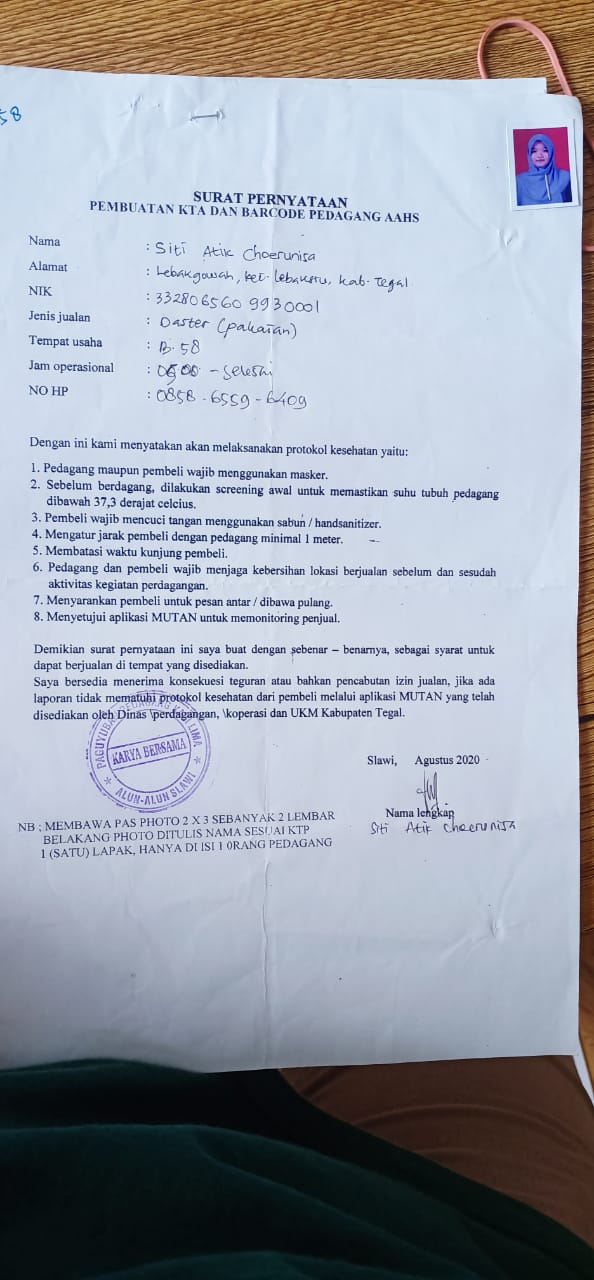 58
SURAT PERNYATAAN
PEMBUATAN KTA DAN BARCODE PEDAGANG AAHS
Nama : Siti Atik Choerunisa
Alamat : Lebakgowah, kec. Lebaksiu, kab. Tegal
NIK : 332806560 9930001
Jenis jualan : Daster (pakaian)
Tempat usaha : B. 58
Jam operasional : - selesai
NO HP : 0858 - 6559 - 6409
Dengan ini kami menyatakan akan melaksanakan protokol kesehatan yaitu:
1. Pedagang maupun pembeli wajib menggunakan masker.
2. Sebelum berdagang, dilakukan screening awal untuk memastikan suhu tubuh pedagang
dibawah 37,3 derajat celcius.
3. Pembeli wajib mencuci tangan menggunakan sabun / handsanitizer.
4. Mengatur jarak pembeli dengan pedagang minimal 1 meter.
5. Membatasi waktu kunjung pembeli.
6. Pedagang dan pembeli wajib menjaga kebersihan lokasi berjualan sebelum dan sesudah
aktivitas kegiatan perdagangan.
7. Menyarankan pembeli untuk pesan antar / dibawa pulang.
8. Menyetujui aplikasi MUTAN untuk memonitoring penjual.
Demikian surat pernyataan ini saya buat dengan sebenar – benarnya, sebagai syarat untuk
dapat berjualan di tempat yang disediakan.
Saya bersedia menerima konsekuesi teguran atau bahkan pencabutan izin jualan, jika ada
laporan tidak mematuhi protokol kesehatan dari pembeli melalui aplikasi MUTAN yang telah
disediakan oleh Dinas \perdagangan, \koperasi dan UKM Kabupaten Tegal.
PAGUYUBAN PEDAGANG KAKI LIMA
KARYA BERSAMA
* ALUN-ALUN SLAWI *
Slawi, Agustus 2020
Nama lengkap
Siti Atik Choerunisa
NB : MEMBAWA PAS PHOTO 2 X 3 SEBANYAK 2 LEMBAR
BELAKANG PHOTO DITULIS NAMA SESUAI KTP
1 (SATU) LAPAK, HANYA DI ISI 1 0RANG PEDAGANG